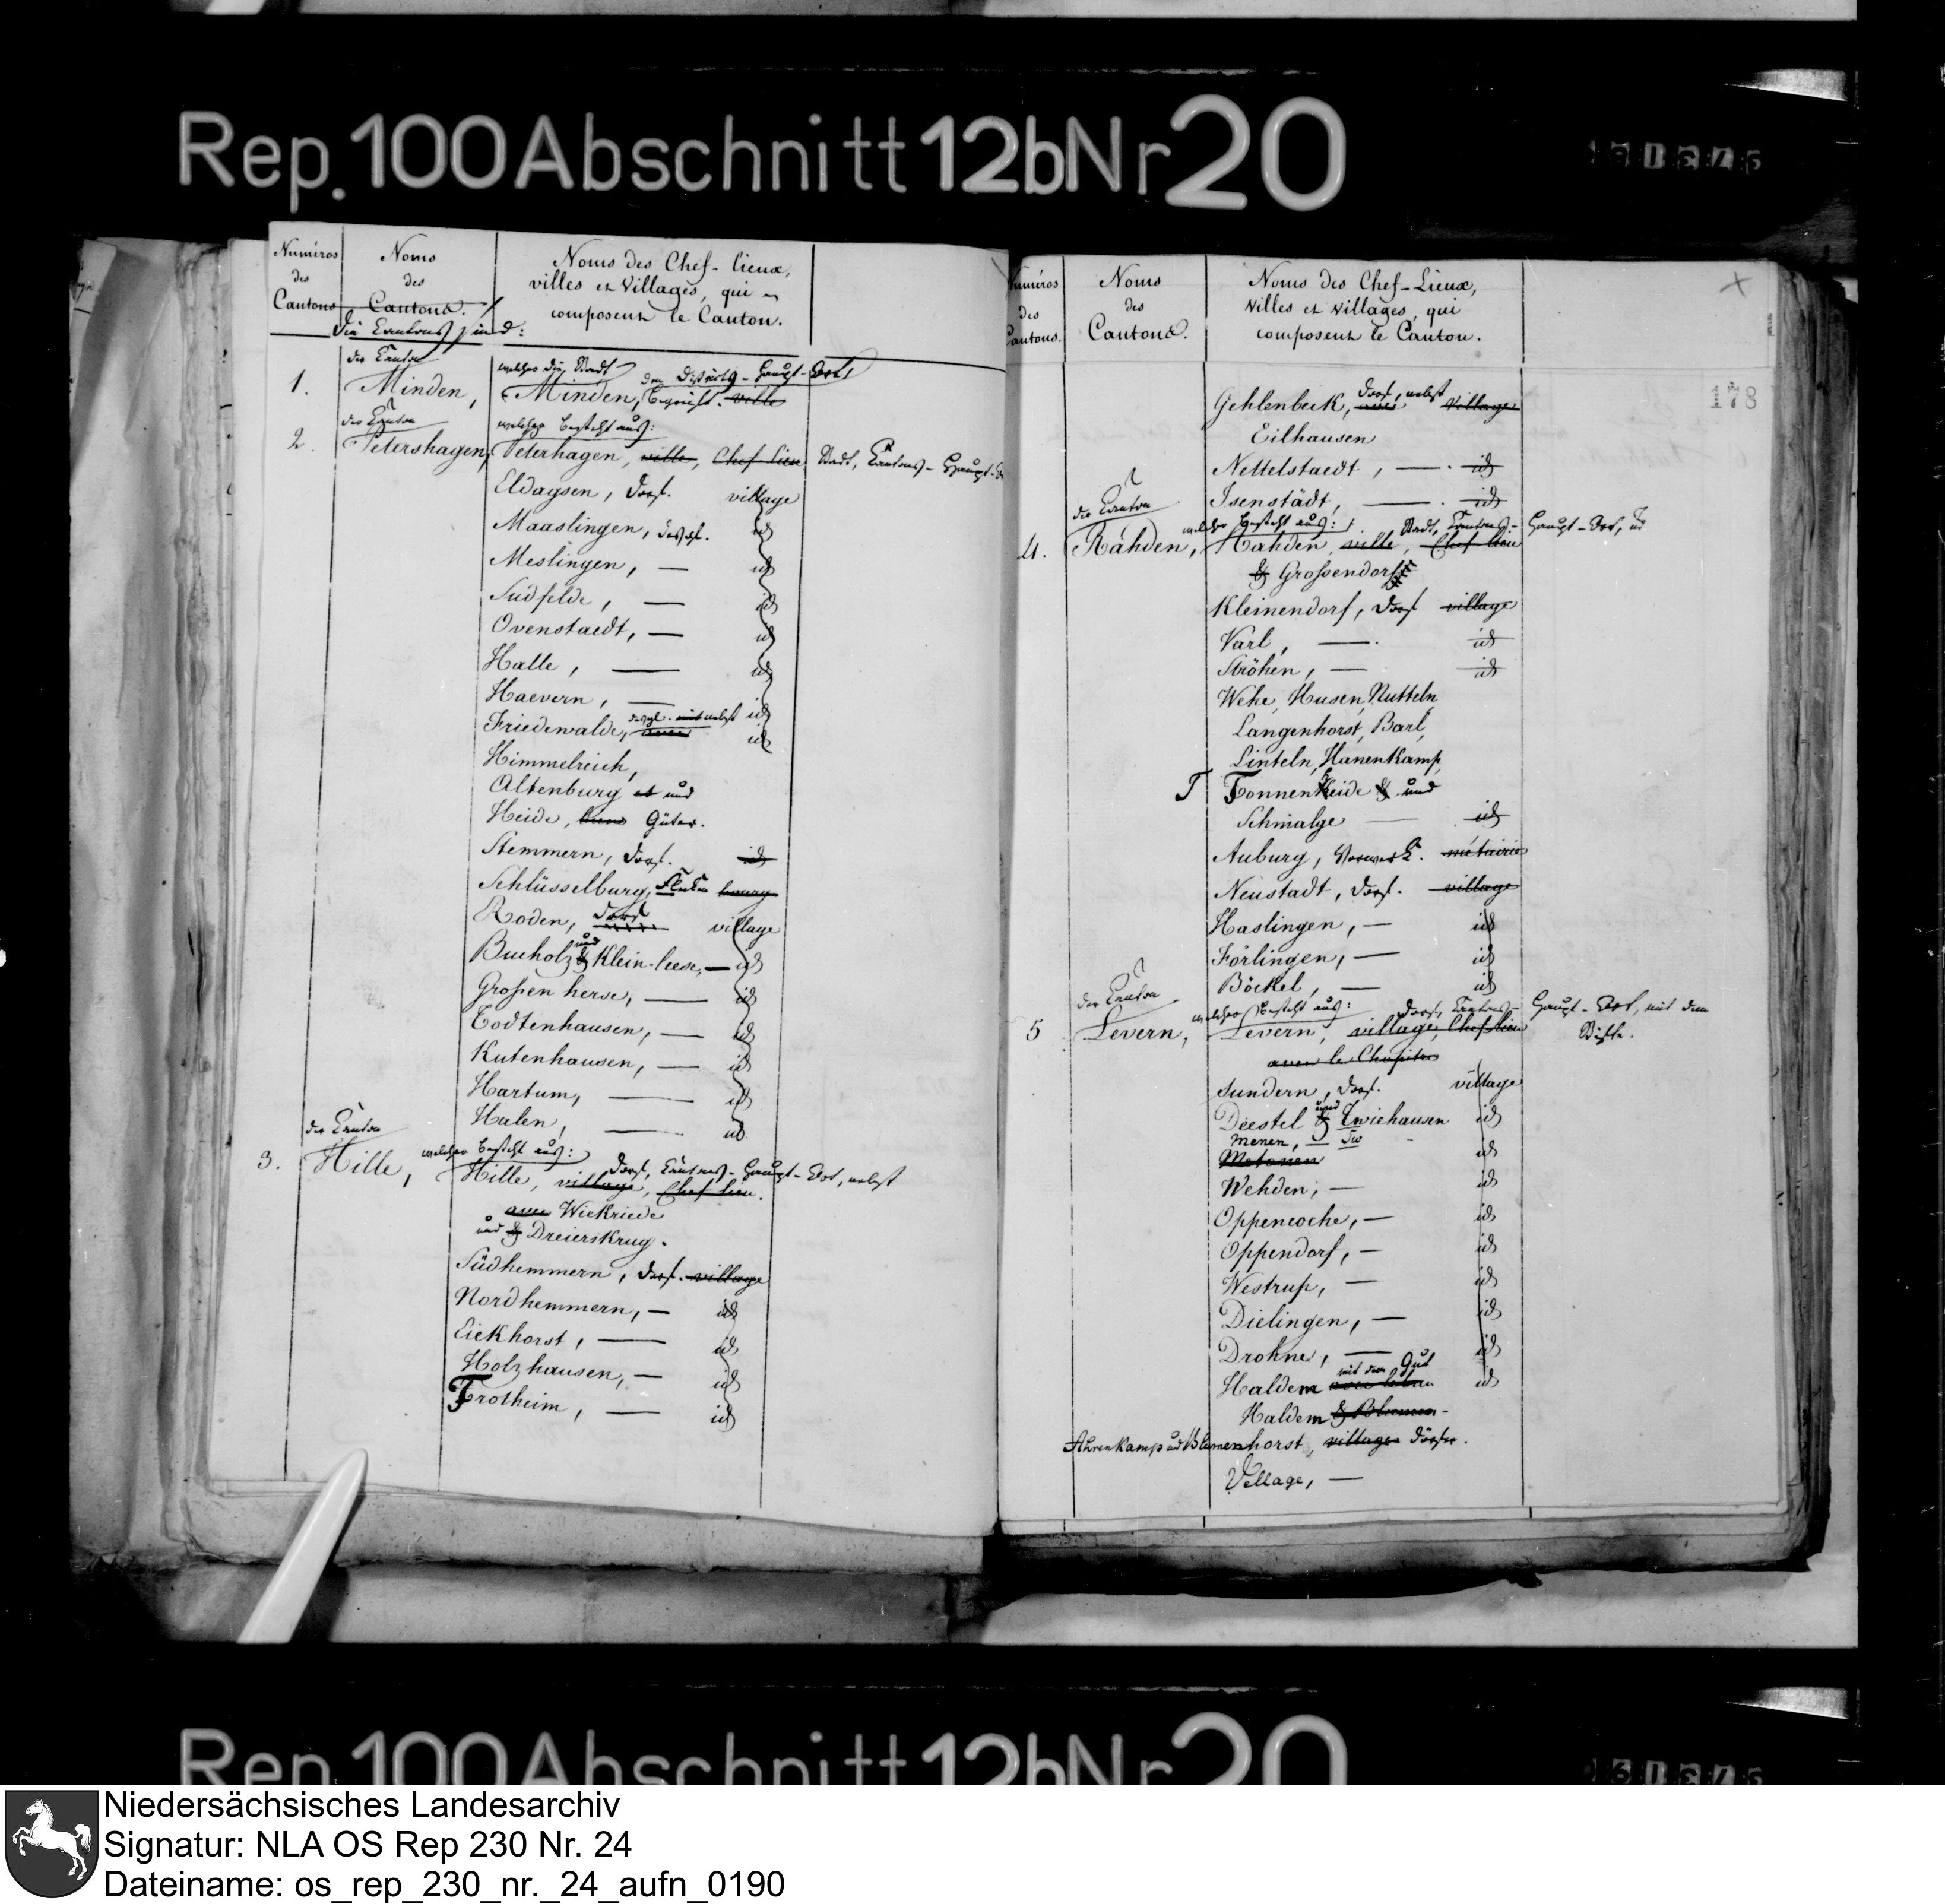 Rep. 100 Abschnitt 12b Nr 20
Numéros des Cantons
Noms des Cantons.
die Cantons sind:
Noms des Chef-lieux,
villes et Villages, qui
composent le Canton.
1. der Canton Minden,
welcher die Stadt
Minden, begreift. ville
den Districts-Haupt-Ort
2. der Canton Petershagen,
welcher besteht aus:
Peterhagen, ville, Chef lieu Stadt, Cantons-Haupt-
Eldagsen, Dorf. village
Maaslingen, desgl. id
Meslingen, — id
Südfelde, — id
Ovenstaedt, — id
Halle, — id
Haevern, — id
Friedewalde, desgl. mit nebst avec id
id
Himmelreich,
Altenburg et und
Heide, biens Güter.
Stemmern, Dorf. id
Schlüsselburg, Flecken bourg
Roden, Dorf village
Bucholz und & Klein-leese, — id
Großen herse, — id
Todtenhausen, — id
Kutenhausen, — id
Hartum, — id
Halen, — id
3. der Canton Hille,
welcher besteht aus:
Dorf, Cantons-Haupt-Ort, nebst
Hille, village, Chef lieu.
avec Wickriede
und & Dreierskrug.
Südhemmern, Dorf. village
Nordhemmern, — id
Eickhorst, — id
Holzhausen, — id
Frotheim, — id
Numéros des Cantons.
Noms des Cantons.
Noms des Chef-Lieux,
villes et villages, qui
composent le Canton.
178
Gehlenbeck, Dorf, nebst avec Village
Eilhausen
Nettelstaedt, — id
Isenstädt, — id
4. der Canton Rahden,
welcher besteht aus: Stadt, Cantons-Haupt-Ort,
Rahden, ville, Chef lieu
& Großendorf
Kleinendorf, Dorf village
Varl, — id
Ströhen, — id
Wehe, Husen, Nutteln,
Langenhorst, Barl,
Linteln, Hanenkamp,
T Tonnenheide & und
Schmalge — id
Auburg, Vorwerk. métairie
Neustadt, Dorf. village
Haslingen, — id
Förlingen, — id
Böckel, — id
5 der Canton Levern,
welcher besteht aus: Dorf, Cantons-Haupt-Ort, mit dem
Levern, village, Chef lieu Stifte.
avec le Chapitre
Sundern, Dorf. village
Deestel und & Twiehausen id
Menen, —
id
Wehden, — id
Oppencoche, — id
Oppendorf, — id
Westrup, — id
Dielingen, — id
Drohne, — id
mit dem Gut
Haldem id
Haldem & Blumen-
Ahrenkamp und Blumenhorst, villages Dörfer.
Vellage, —
Rep. 100 Abschnitt 12b Nr 20
Niedersächsisches Landesarchiv
Signatur: NLA OS Rep 230 Nr. 24
Dateiname: os_rep_230_nr._24_aufn_0190